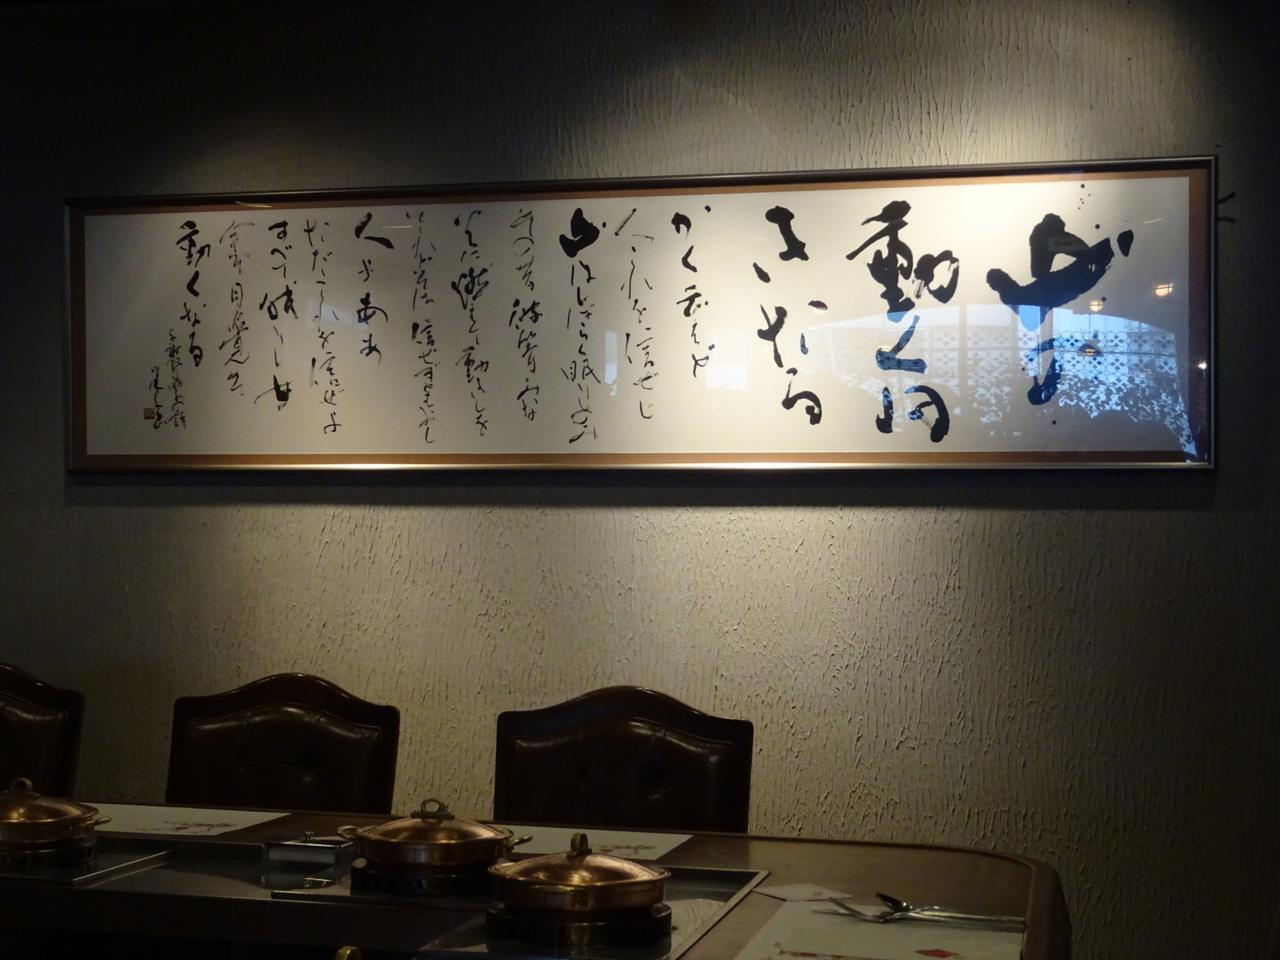 山の
動く日
きたる
かく云へど
人これを信ぜじ
山はしばらく眠りしのみ
その昔彼等みな
火に燃えて動きしを
されど そは信ぜずともよし
人よ ああ
ただこれを信ぜよ
すべて眠りし女
今ぞ目覚めて
動くなる
与謝野晶子詩